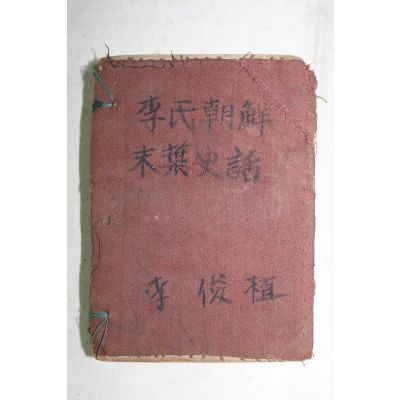 李氏朝鮮
末葉史話
李俊植